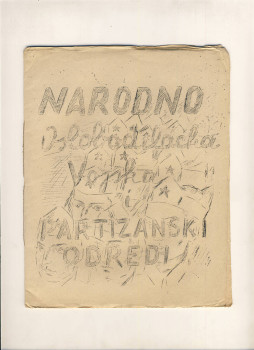 NARODNO
Oslobodilačka
Vojska
i
PARTIZANSKI
ODREDI